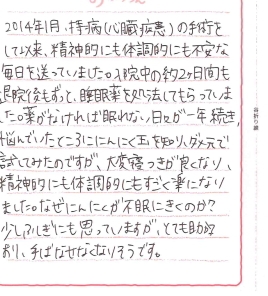 2014年1月、持病(心臓疾患)の手術を
して以来、精神的にも体調的にも不安な
毎日を送っていました。入院中の約2ヶ月間も
退院後もずっと、睡眠薬を処法してもらっていま
した。薬がなければ眠れない日々が一年続き、
悩んでいたところににんにく玉を知り、ダメ元で
試してみたのですが、大変寝つきが良くなり、
精神的にも体調的にもすごく楽になり
ました。なぜにんにくが不眠にきくのか?
少しふしぎにも思っていますが、とても助かって
おり、手ばなせなくなりそうです。